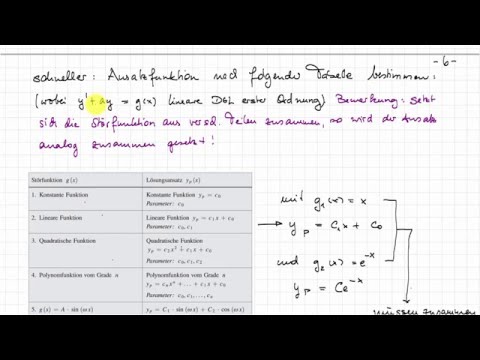 - 6 -
schneller: Ansatzfunktion nach folgender Tabelle bestimmen:
(wobei y' + ay = g(x) lineare DGL erster Ordnung) Bemerkung: setzt
sich die Störfunktion aus versd. Teilen zusammen, so wird der Ansatz
analog zusammen gesetzt!
Störfunktion g(x) Lösungsansatz y_p(x)
1. Konstante Funktion Konstante Funktion y_p = c_0
Parameter: c_0
2. Lineare Funktion Lineare Funktion y_p = c_1 x + c_0
Parameter: c_0, c_1
3. Quadratische Funktion Quadratische Funktion
y_p = c_2 x² + c_1 x + c_0
Parameter: c_0, c_1, c_2
4. Polynomfunktion vom Grade n Polynomfunktion vom Grade n
y_p = c_n xⁿ + ... + c_1 x + c_0
Parameter: c_0, c_1, ..., c_n
5. g(x) = A · sin (ωx) y_p = C_1 · sin (ωx) + C_2 · cos (ωx)
mit g_1(x) = x
→ y_p = C_1 x + C_0
und g_2(x) = e^{-x}
y_p = C e^{-x}
müssen zusammen